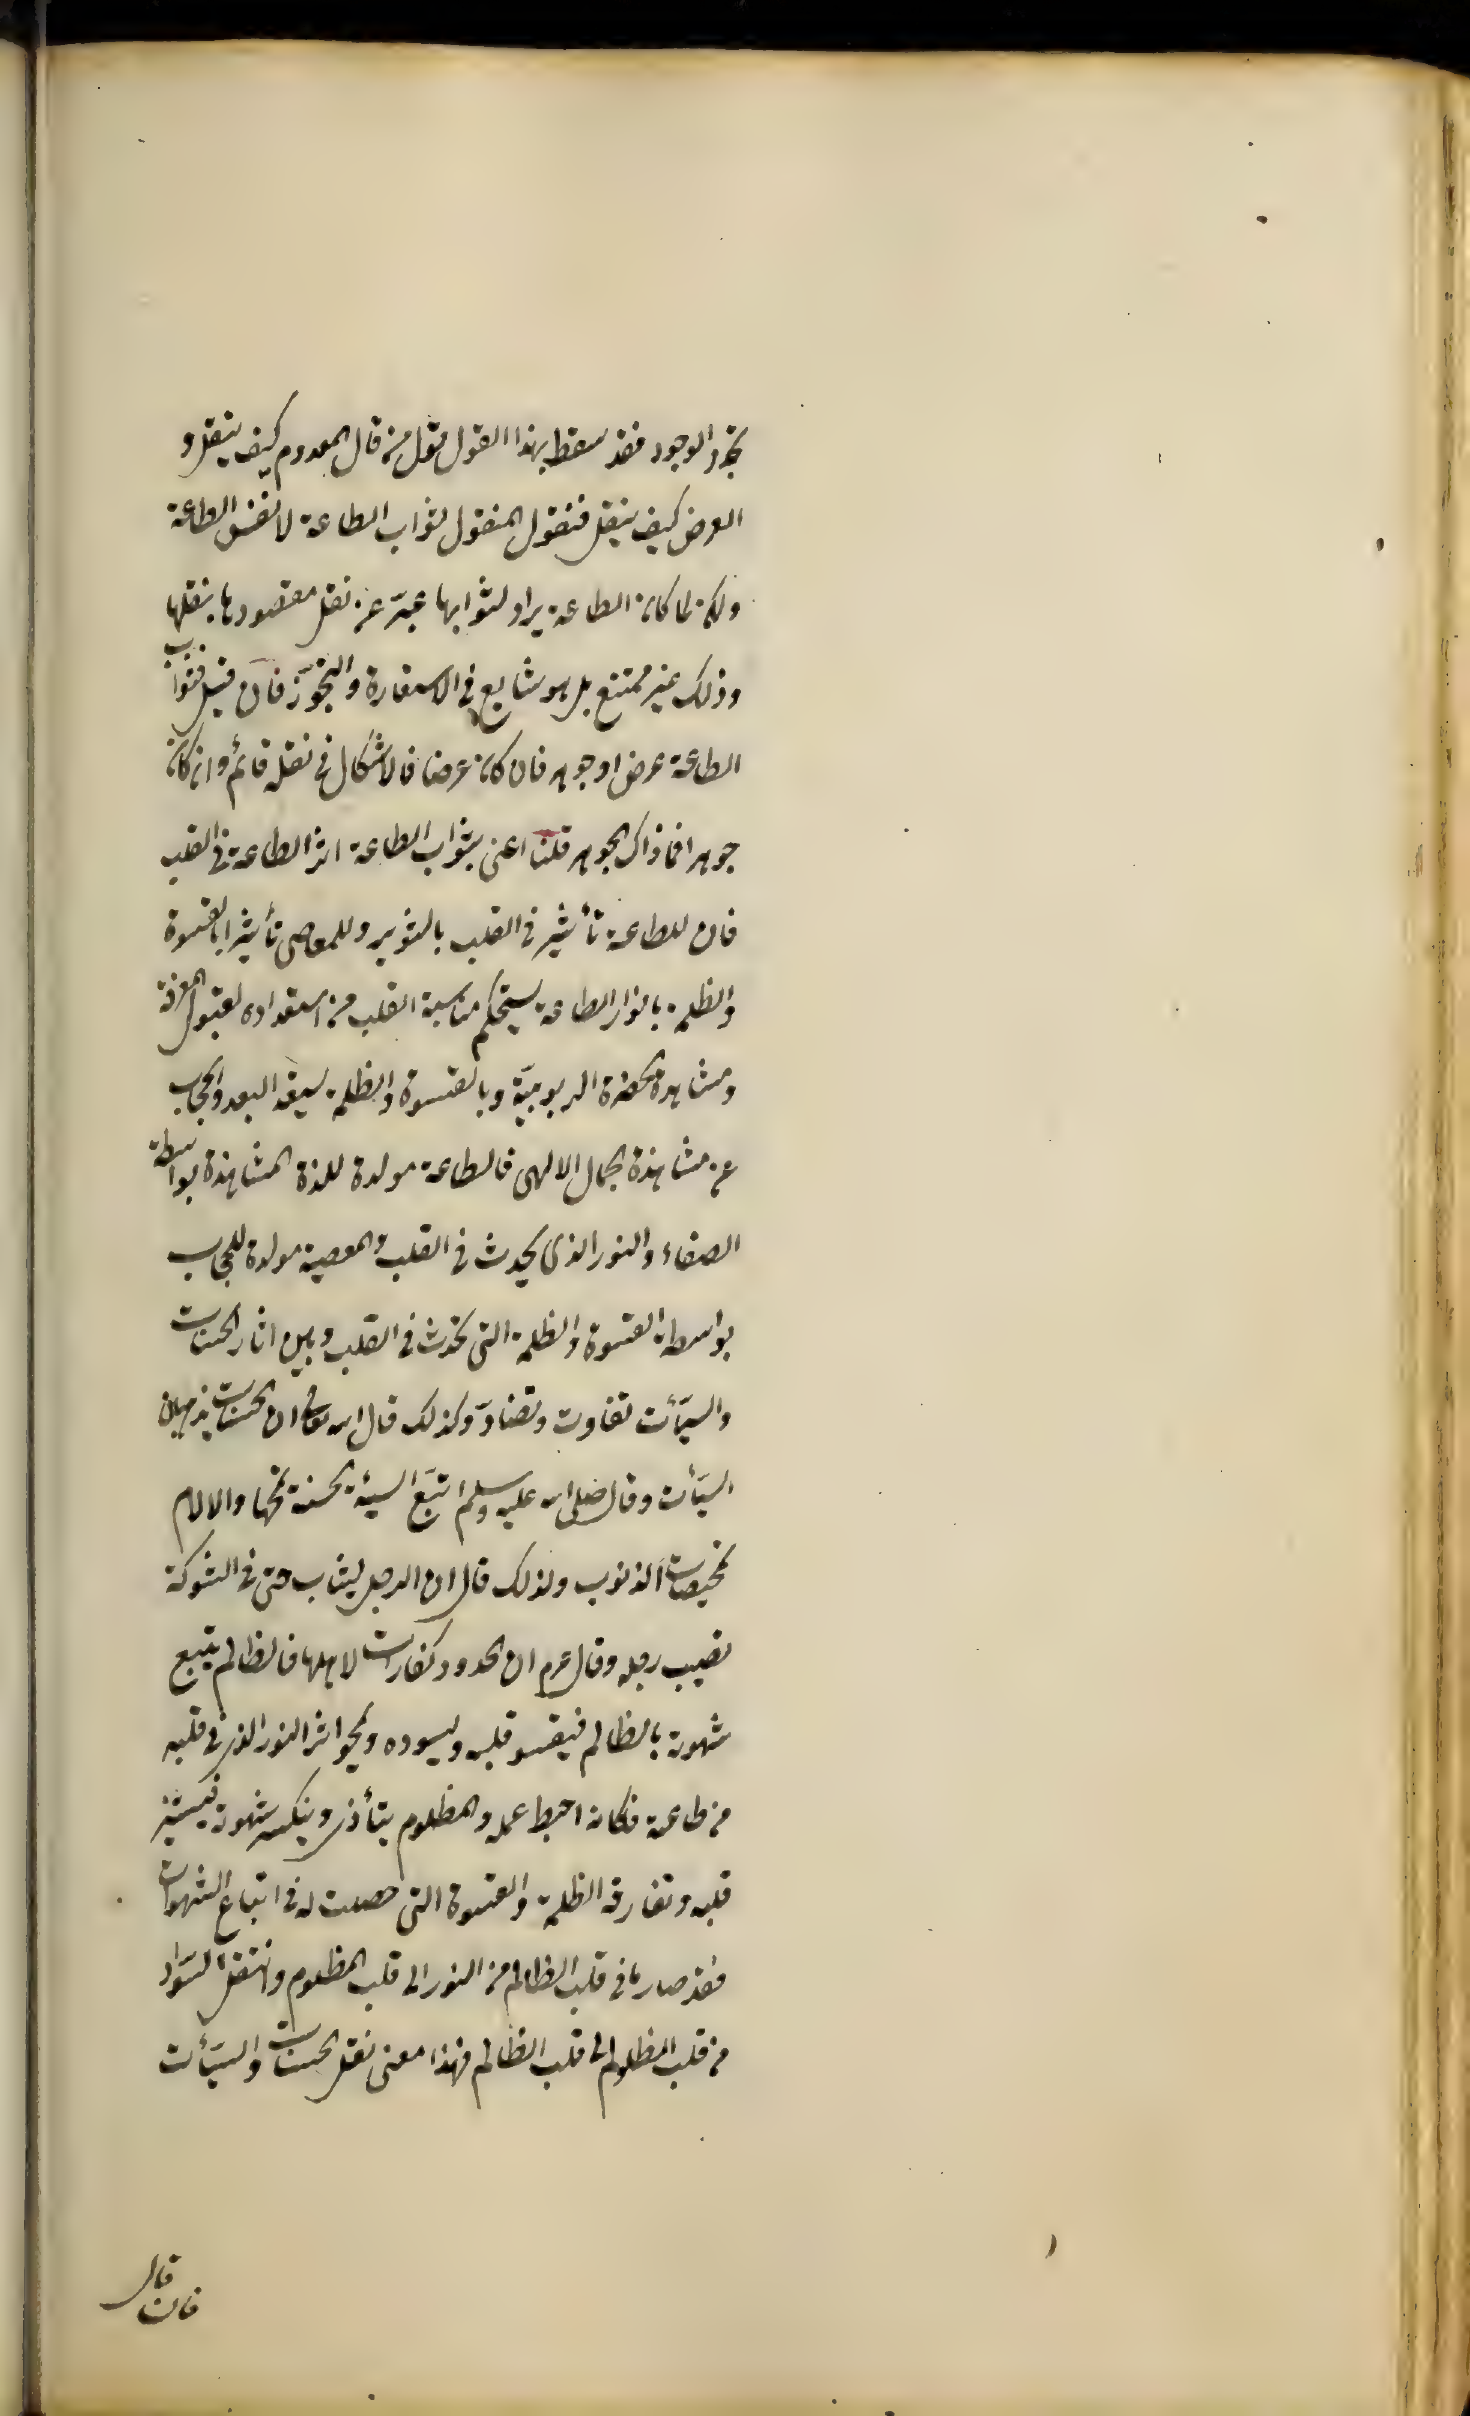 تجرد الوجود فقد سقط بهذا القول قول من قال المعدوم كيف ينقل و
العرض كيف ينقل فنقول المنقول ثواب الطاعة لا نفس الطاعة
ولكن لما كانت الطاعة يراد لثوابها عبّر عن نقل مقصودها بنقلها
وذلك غير ممتنع بل هو شايع في الاستعارة والتجوّز فان قيل فثواب
الطاعة عرض او جوهر فان كان عرضا فالاشكال في نقله قائم وان كان
جوهرا فما ذاك الجوهر قلنا اعنى بثواب الطاعة اثر الطاعة في القلب
فان للطاعة تأثير في القلب بالتنوير وللمعاصى تأثيرا بالقسوة
والظلمة بانوار الطاعة يستحكم مناسبة القلب من استعداده لقبول المعرفة
ومشاهدة الحضرة الربوبيّة وبالقسوة والظلمة يستعد البعد والحجاب
عن مشاهدة الجمال الالهى فالطاعة مولدة للذة المشاهدة بواسطة
الصفاء والنور الذى يحدث في القلب والمعصية مولدة للحجاب
بواسطة القسوة والظلمة التى تحدث في القلب وبين اثار الحسنات
والسيّأت تفاوت وتضادّ وكذلك قال الله تعالى ان الحسنات يذهبن
السيّأت وقال صلى الله عليه وسلم اتبع السيئة الحسنة تمحها والالام
تمحيصات الذنوب ولذلك قال ان الرجل ليثاب حتى في الشوكة
تصيب رجله وقال عم ان الحدود كفارات لاهلها فالظالم يتبع
شهوته بالظالم فيقسو قلبه ويسوده ويمحو اثر النور الذى في قلبه
من طاعة فكانه احبط عمله والمظلوم يتأذى وينكسر شهوته فيستنير
قلبه وتفارقه الظلمة والقسوة التى حصلت له في اتباع الشهوات
فقد صار ما في قلب الظالم من النور الى قلب المظلوم وانتقل السّواد
من قلب المظلوم الى قلب الظالم فهذا معنى نقل الحسنات والسيّأت
فان قال